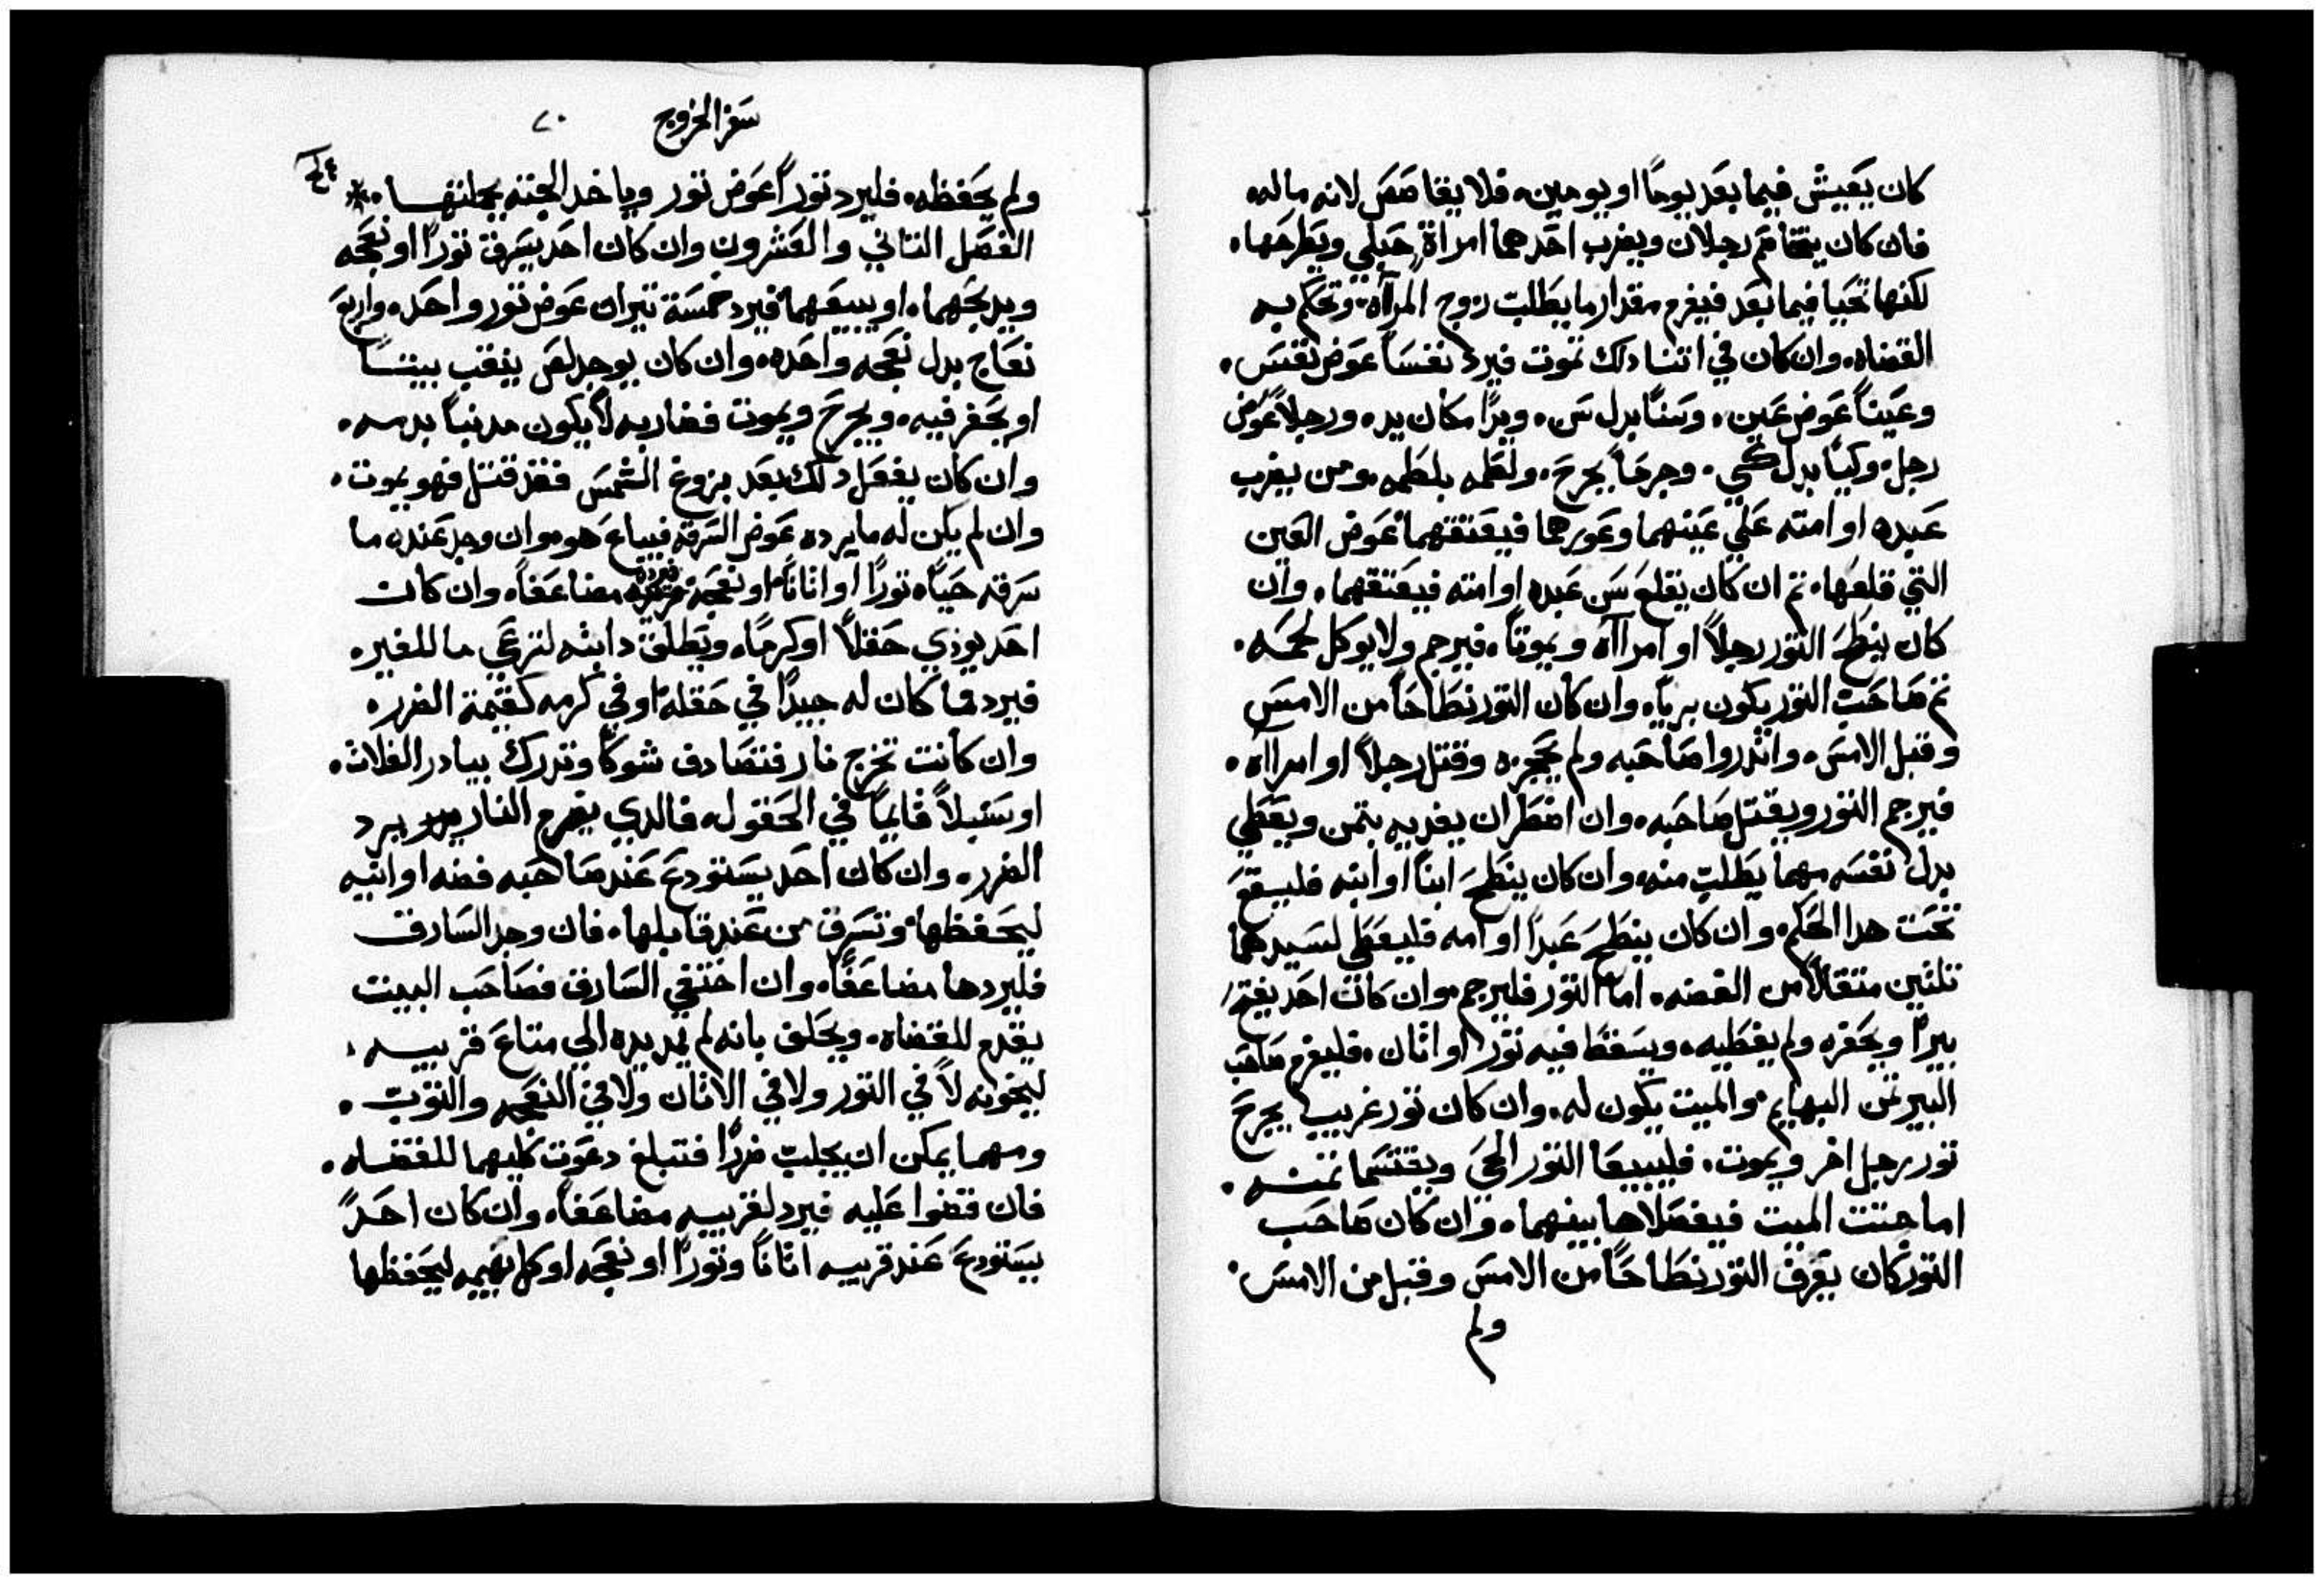 كان يَعيش فيما بعَد يومًا او يومين، فلا يقاصَصَ لانه ماله
فان كان يتخاصَم رجلان ويضرب احَدهما امراة حَبلي ويَطرحَها،
لكنها تحَيا فيما بَعد فيغرم مقدار ما يَطلبَ زوج المرآة، وتحَكم به
القضاه، وان كان في اتنا دلك تموت فيرد نفسَاً عَوض نفسَ،
وعَيناً عَوض عَين، وسَنًا بدل سَن، ويدًا مكان يد، ورجلاً عَوض
رجل، وكيًا بدل كي، وجرحَاً بجرحَ، ولطَمه بلطَمه، ومن يضرب
عَبده او امته عَلي عَينهما وعَورهما فيعَتقهما عَوض العَين
التي قلعَها، تم ان كان يقلعَ سَن عَبده او امته فيعَتقهما، وان
كان ينطَحَ التور رجلاً او امراآه ويموتا، فيرجم ولا يوكل لحَمَه،
تم صَاحَبَ التور يكون برياً، وان كان التور نطَاحَاً من الامسَ
وقبل الامسَ، وانذروا صَاحَبه ولم يحَجزه وقتل رجلاً او امراآه،
فيرجم التور ويقتل صَاحَبه، وان اضطَر ان يفديه بتمن ويعَطي
بدل نفسَه مهما يَطلب منه، وان كان ينطَحَ ابنًا او ابنه فليسقَع
تحَت هدا الحَكم، وان كان ينطَحَ عَبدًا او امه فليعَطي لسَيدهما
تلتين متقالاً من الفضه، اما التور فليرجم، وان كان احَد يفتحَ
بيرًا ويحَفره ولم يغطَيه، ويسَقط فيه تورًا او اتان، فليغرم صَاحَب
البير تمن البهايم، والميت يكون له، وان كان تور غريب يجرحَ
تور رجل اخر ويموت، فليبيعَا التور الحَي ويقتسَما تمنه،
اما جتت الميت فيفصَلاها بينهما، وان كان صَاحَب
التور كان يعَرف التور نطَاحَاً من الامسَ وقبل من الامسَ،
ولم
سَفر الخروج ٧٠
ولم يحَفظه، فليرد توراً عَوض تور وياخد الجته بجملتها،
الفصَل التاني والعَشرون وان كان احَد يسَرق تورًا او نعَجَه
ويدبحَهما، او يبيعَهما، فيرد خمسَة تيران عَوض تور واحَد، واربع
نعَاج بدل نعَجه واحَده، وان كان يوجد لصَ ينقب بيتًا
او يحَفر فيه، ويجرحَ ويموت فضاربه لا يكون مدنباً بدمه،
وان كان يفعَل دلك بعَد بزوغ الشمسَ فقد قتل فهو يموت،
وان لم يكن له ما يرده عَوض السَرقه فيباعَ هو، وان وجد عَنده ما
سَرقه حَيًا، تورًا او اتانًا او نعَجه فيرده مضاعَفاً، وان كان
احَد يوذي حَقلاً او كرمًا، ويَطلق دابته لترعَي ما للغير،
فيرد ما كان له جيدًا في حَقله او في كرمه كقيمة الضرر،
وان كانت تخرج نار فتصَادف شوكًا وتدرك بيادر الغلات،
او سَنبلاً قايمًا في الحَقول، فالدي يضرم النار يرد
الضرر، وان كان احَد يسَتودعَ عَند صَاحَبه فضه او انيه
ليحَفظها، وتسَرق من عَند قابلها، فان وجد السَارق
فليردها مضاعَفًا، وان اختفي السَارق فصَاحَب البيت
يقدم للقضاه، ويحَلف بانه لم يمد يده الي متاعَ قريبه،
ليخونه لا في التور ولا في الاتان ولا في النعَجه والتوب،
ومهما يمكن ان يجلب ضررًا فتبلغ دعَوت كليهما للقضاه،
فان قضوا عَليه فيرد لقريبه مضاعَفاً، وان كان احَدً
يسَتودعَ عَند قريبه اتانًا وتورًا او نعَجَه او كل بهيمه ليحَفظها